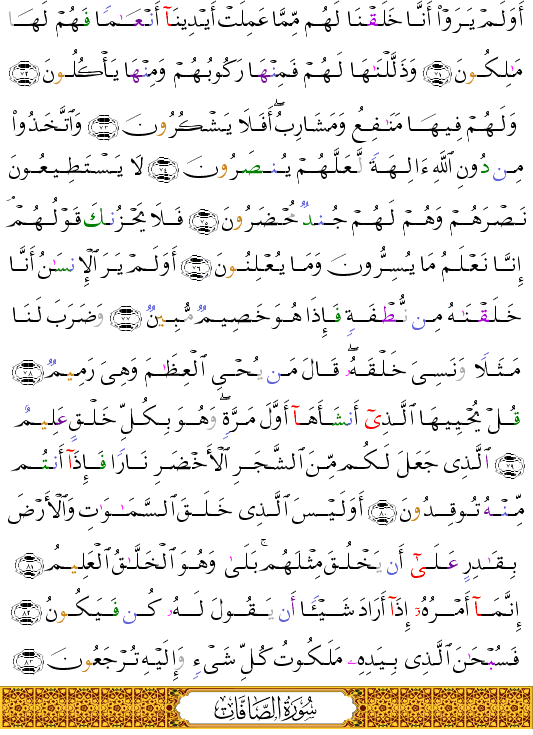 أَوَلَمْ يَرَوْا۟ أَنَّا خَلَقْنَا لَهُم مِّمَّا عَمِلَتْ أَيْدِينَآ أَنْعَـٰمًا فَهُمْ لَهَا
مَـٰلِكُونَ ﴿٧١﴾ وَذَلَّلْنَـٰهَا لَهُمْ فَمِنْهَا رَكُوبُهُمْ وَمِنْهَا يَأْكُلُونَ ﴿٧٢﴾
وَلَهُمْ فِيهَا مَنَـٰفِعُ وَمَشَارِبُ ۖ أَفَلَا يَشْكُرُونَ ﴿٧٣﴾ وَٱتَّخَذُوا۟
مِن دُونِ ٱللَّهِ ءَالِهَةً لَّعَلَّهُمْ يُنصَرُونَ ﴿٧٤﴾ لَا يَسْتَطِيعُونَ
نَصْرَهُمْ وَهُمْ لَهُمْ جُندٌ مُّحْضَرُونَ ﴿٧٥﴾ فَلَا يَحْزُنكَ قَوْلُهُمْ ۘ
إِنَّا نَعْلَمُ مَا يُسِرُّونَ وَمَا يُعْلِنُونَ ﴿٧٦﴾ أَوَلَمْ يَرَ ٱلْإِنسَـٰنُ أَنَّا
خَلَقْنَـٰهُ مِن نُّطْفَةٍ فَإِذَا هُوَ خَصِيمٌ مُّبِينٌ ﴿٧٧﴾ وَضَرَبَ لَنَا
مَثَلًا وَنَسِىَ خَلْقَهُۥ ۖ قَالَ مَن يُحْىِ ٱلْعِظَـٰمَ وَهِىَ رَمِيمٌ ﴿٧٨﴾
قُلْ يُحْيِيهَا ٱلَّذِىٓ أَنشَأَهَآ أَوَّلَ مَرَّةٍ ۖ وَهُوَ بِكُلِّ خَلْقٍ عَلِيمٌ
﴿٧٩﴾ ٱلَّذِى جَعَلَ لَكُم مِّنَ ٱلشَّجَرِ ٱلْأَخْضَرِ نَارًا فَإِذَآ أَنتُم
مِّنْهُ تُوقِدُونَ ﴿٨٠﴾ أَوَلَيْسَ ٱلَّذِى خَلَقَ ٱلسَّمَـٰوَٰتِ وَٱلْأَرْضَ
بِقَـٰدِرٍ عَلَىٰٓ أَن يَخْلُقَ مِثْلَهُم ۚ بَلَىٰ وَهُوَ ٱلْخَلَّـٰقُ ٱلْعَلِيمُ ﴿٨١﴾
إِنَّمَآ أَمْرُهُۥٓ إِذَآ أَرَادَ شَيْـًٔا أَن يَقُولَ لَهُۥ كُن فَيَكُونُ ﴿٨٢﴾
فَسُبْحَـٰنَ ٱلَّذِى بِيَدِهِۦ مَلَكُوتُ كُلِّ شَىْءٍ وَإِلَيْهِ تُرْجَعُونَ ﴿٨٣﴾
سُورَةُ الصَّافَّاتِ